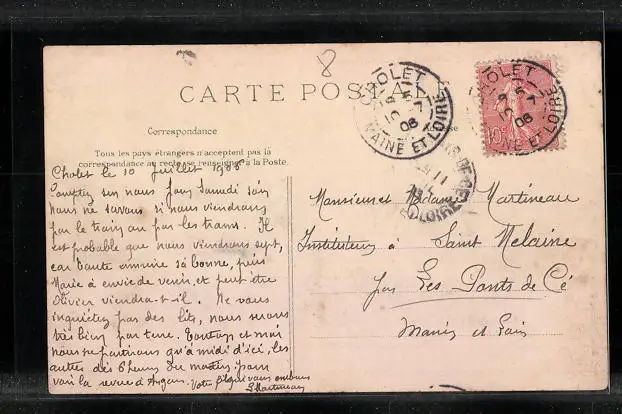 8
CARTE POSTALE
Correspondance
Tous les pays étrangers n'acceptent pas la
correspondance au recto se renseigner à la Poste.
CHOLET
MAINE ET LOIRE
10 7 06
CHOLET
MAINE ET LOIRE
06
10c
Cholet le 10 Juillet 1906
Comptez sur nous pour Samedi soir
nous ne savons si nous viendrons
par le train ou par les trams. Il
est probable que nous viendrons sept,
car tante amène sa bonne, puis
Marie a envie de venir, et peut être
Olivier viendra-t-il. Ne vous
inquiétez pas des lits, nous serons
très bien par terre. Tonton et moi
nous ne partirons qu'à midi d'ici, les
autres dès 6 heures du matin pour
voir la revue d'Angers. Votre fils qui vous embrasse
Martineau
Monsieur et Madame Martineau
Instituteurs à Saint Melaine
par Les Ponts de Cé
Maine et Loire